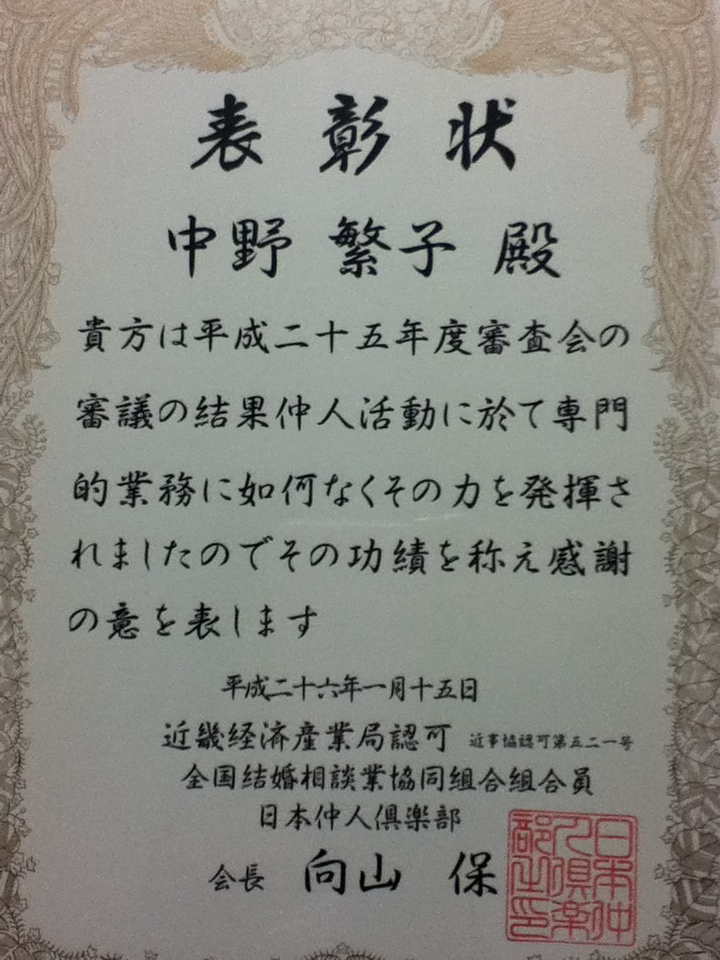 表彰状
中野 繁子 殿
貴方は平成二十五年度審査会の
審議の結果仲人活動に於て専門
的業務に如何なくその力を発揮さ
れましたのでその功績を称え感謝
の意を表します
平成二十六年一月十五日
近畿経済産業局認可 近事協認可第五二一号
全国結婚相談業協同組合組合員
日本仲人倶楽部
会長 向山 保
日本仲人倶楽部之印